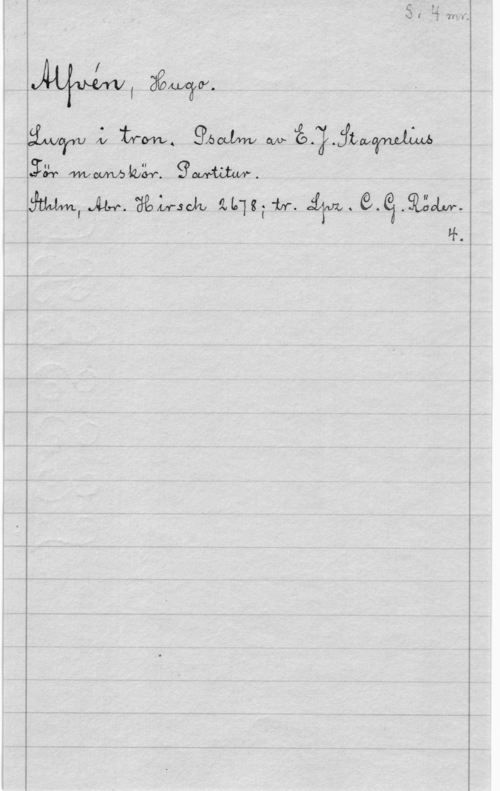 S. 4 mr.
Alfvén, Hugo.
Lugn i tron. Psalm av E. J. Stagnelius
För manskör. Partitur.
Sthlm, Abr. Hirsch 2678; tr. Lpz. C. G. Röder.
4.